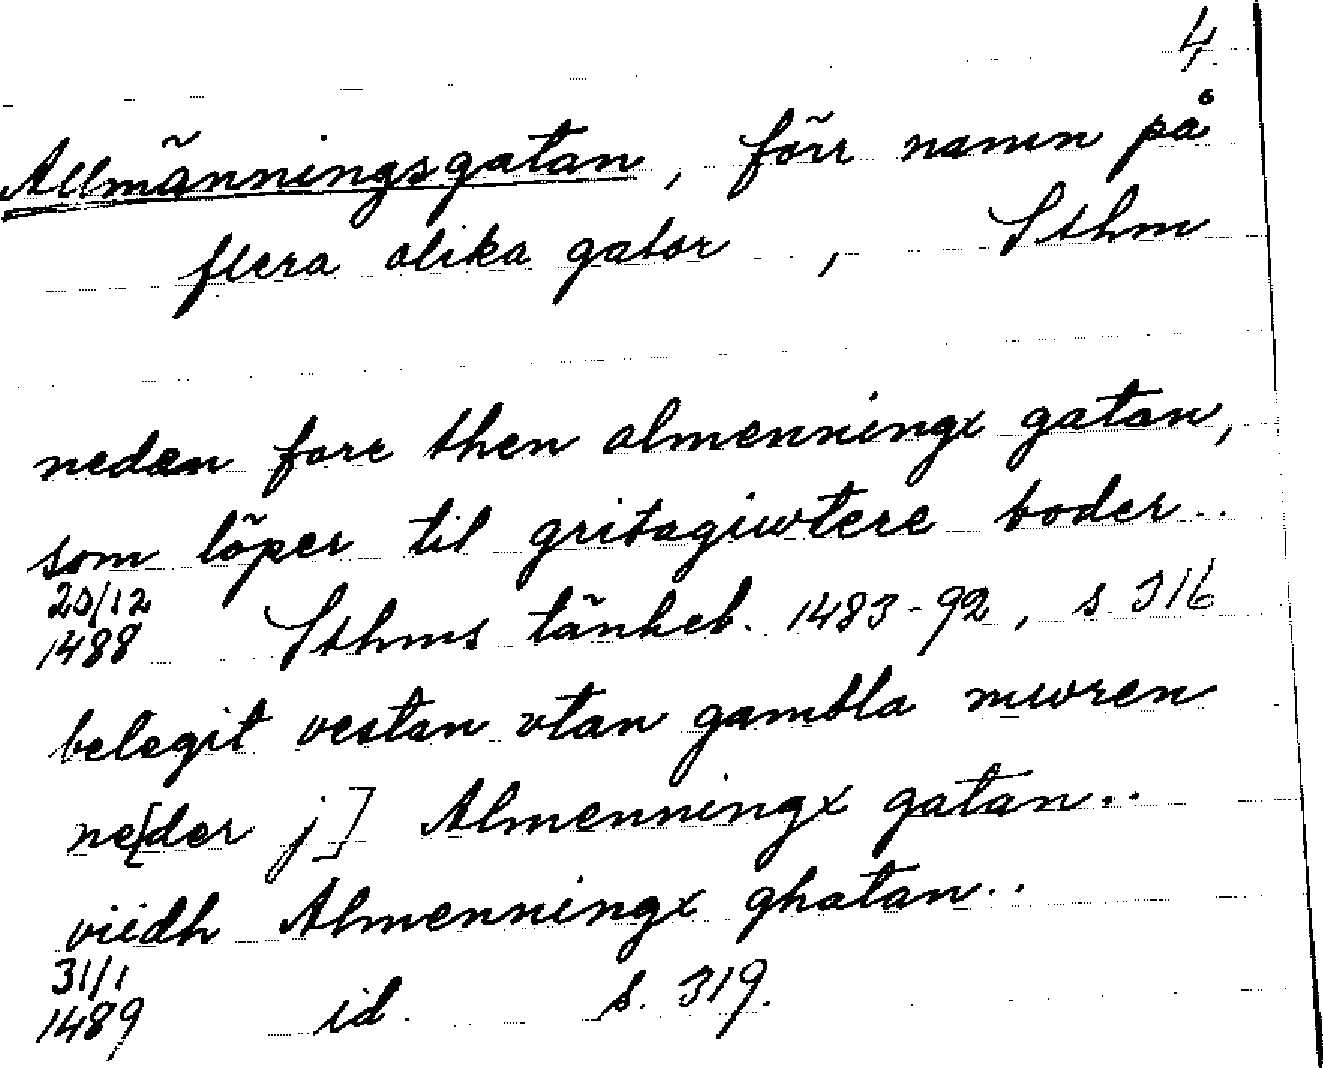 4
Allmänningsgatan, förr namn på
flera olika gator, Sthm
neden fore then almenningx gatan,
som löper til gritagiwtere boder..
20/12
1488 Sthms tänkeb. 1483-92, s 316
belegit vestan vtan gambla mwren
ne[der j] Almenningx gatan..
viidh Almenningx ghatan..
31/1
1489 id. s. 319.